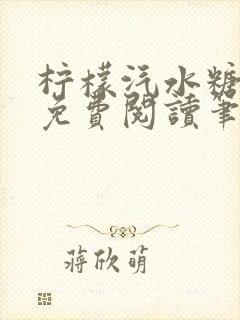 柠檬汽水糖
免費閱讀筆
蔣欣萌